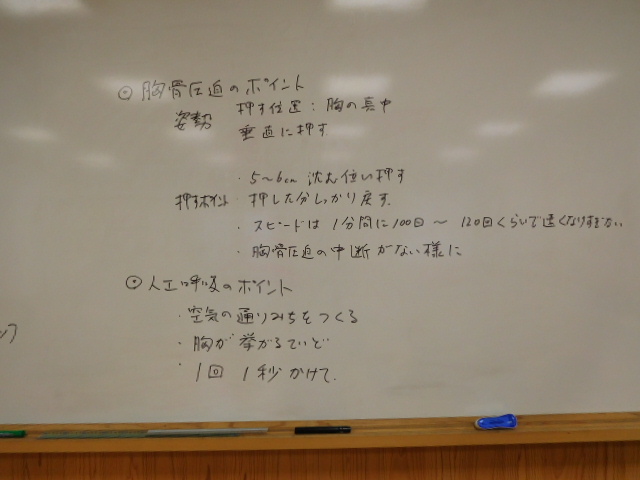 ⊙ 胸骨圧迫のポイント
姿勢 押す位置：胸の真中
垂直に押す
・5〜6cm 沈む位い押す
押すポイント ・押した分しっかり戻す.
・スピードは 1分間に100回〜120回くらいで速くなりすぎない
・胸骨圧迫の中断がない様に
⊙ 人工呼吸のポイント
・空気の通りみちをつくる
・胸が挙がるていど
・1回 1秒かけて.